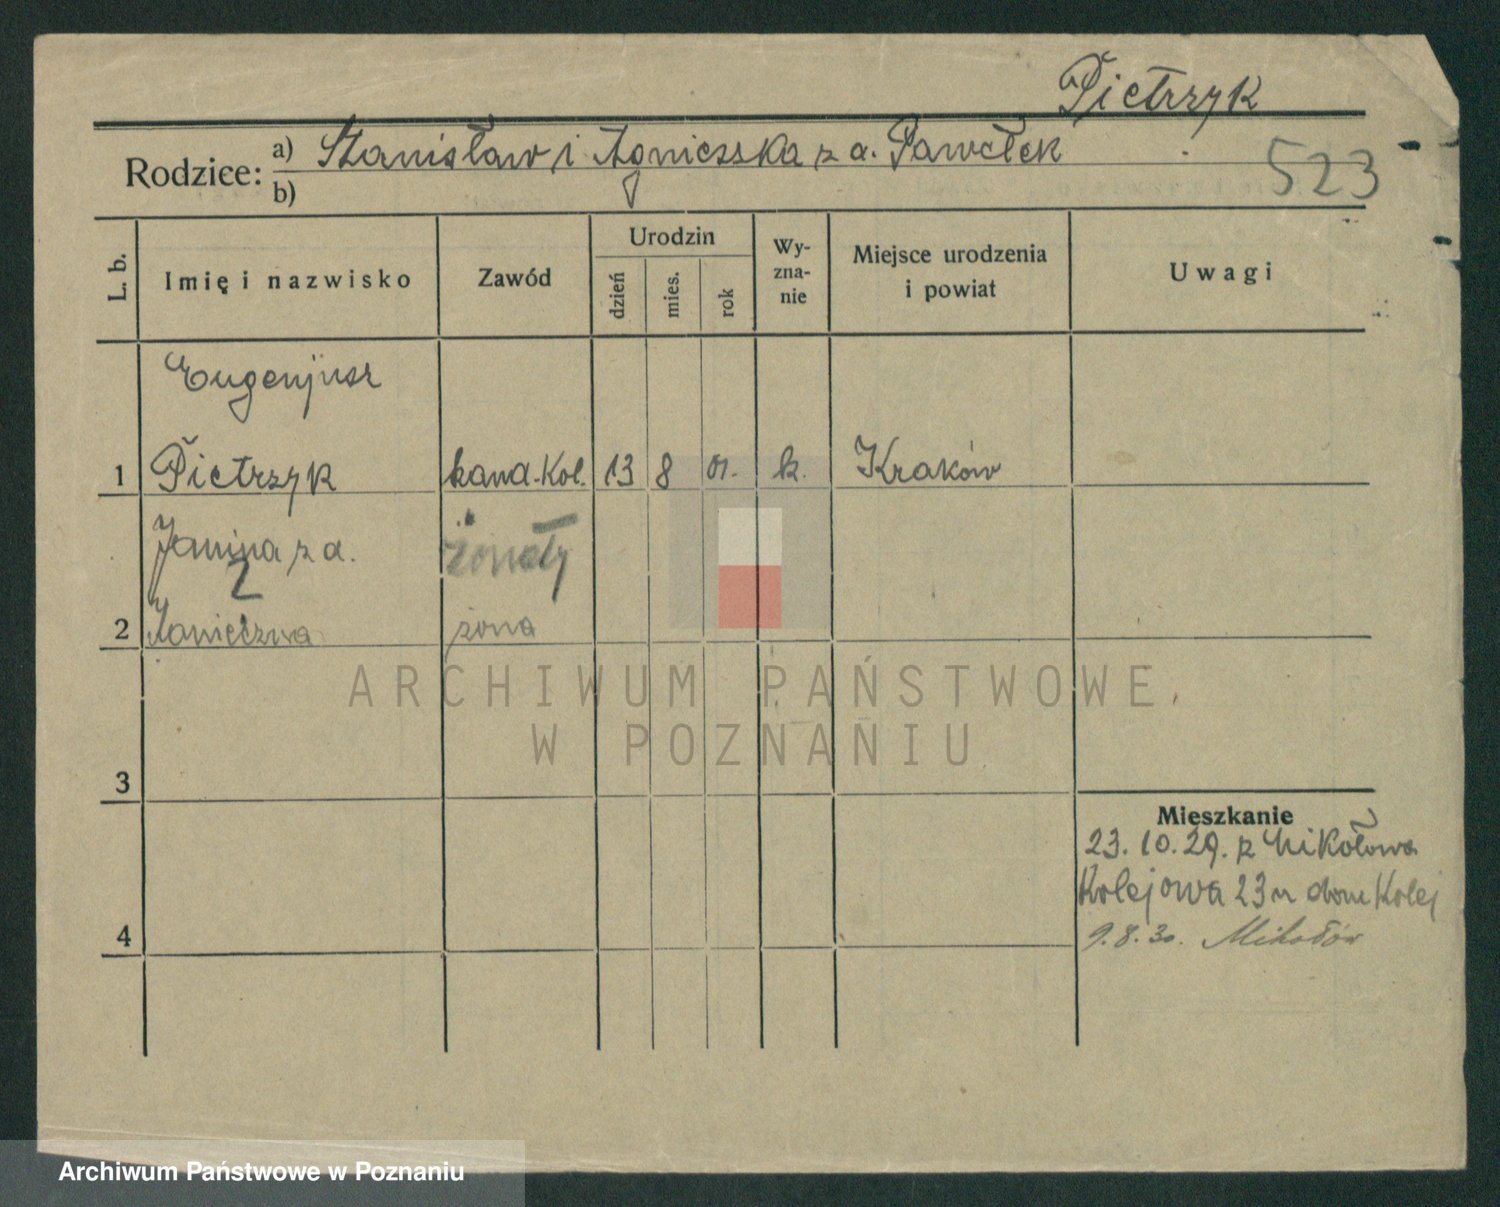 Pietrzyk
Rodzice: a) Stanisław i Agnieszka z d. Pawełek
b)
523
L. b.
Imię i nazwisko
Zawód
Urodzin
dzień
mies.
rok
Wy-
zna-
nie
Miejsce urodzenia
i powiat
Uwagi
Eugenjusz
1 Pietrzyk kand. Kol. 13 8 01. k. Kraków
Janina z d. żonaty
2
2 żona
ARCHIWUM PAŃSTWOWE
W POZNANIU
3
Mieszkanie
23.10.29. z Mikołowa
Kolejowa 23 m dom Kolej
4
9.8.30. Mikołów
Archiwum Państwowe w Poznaniu